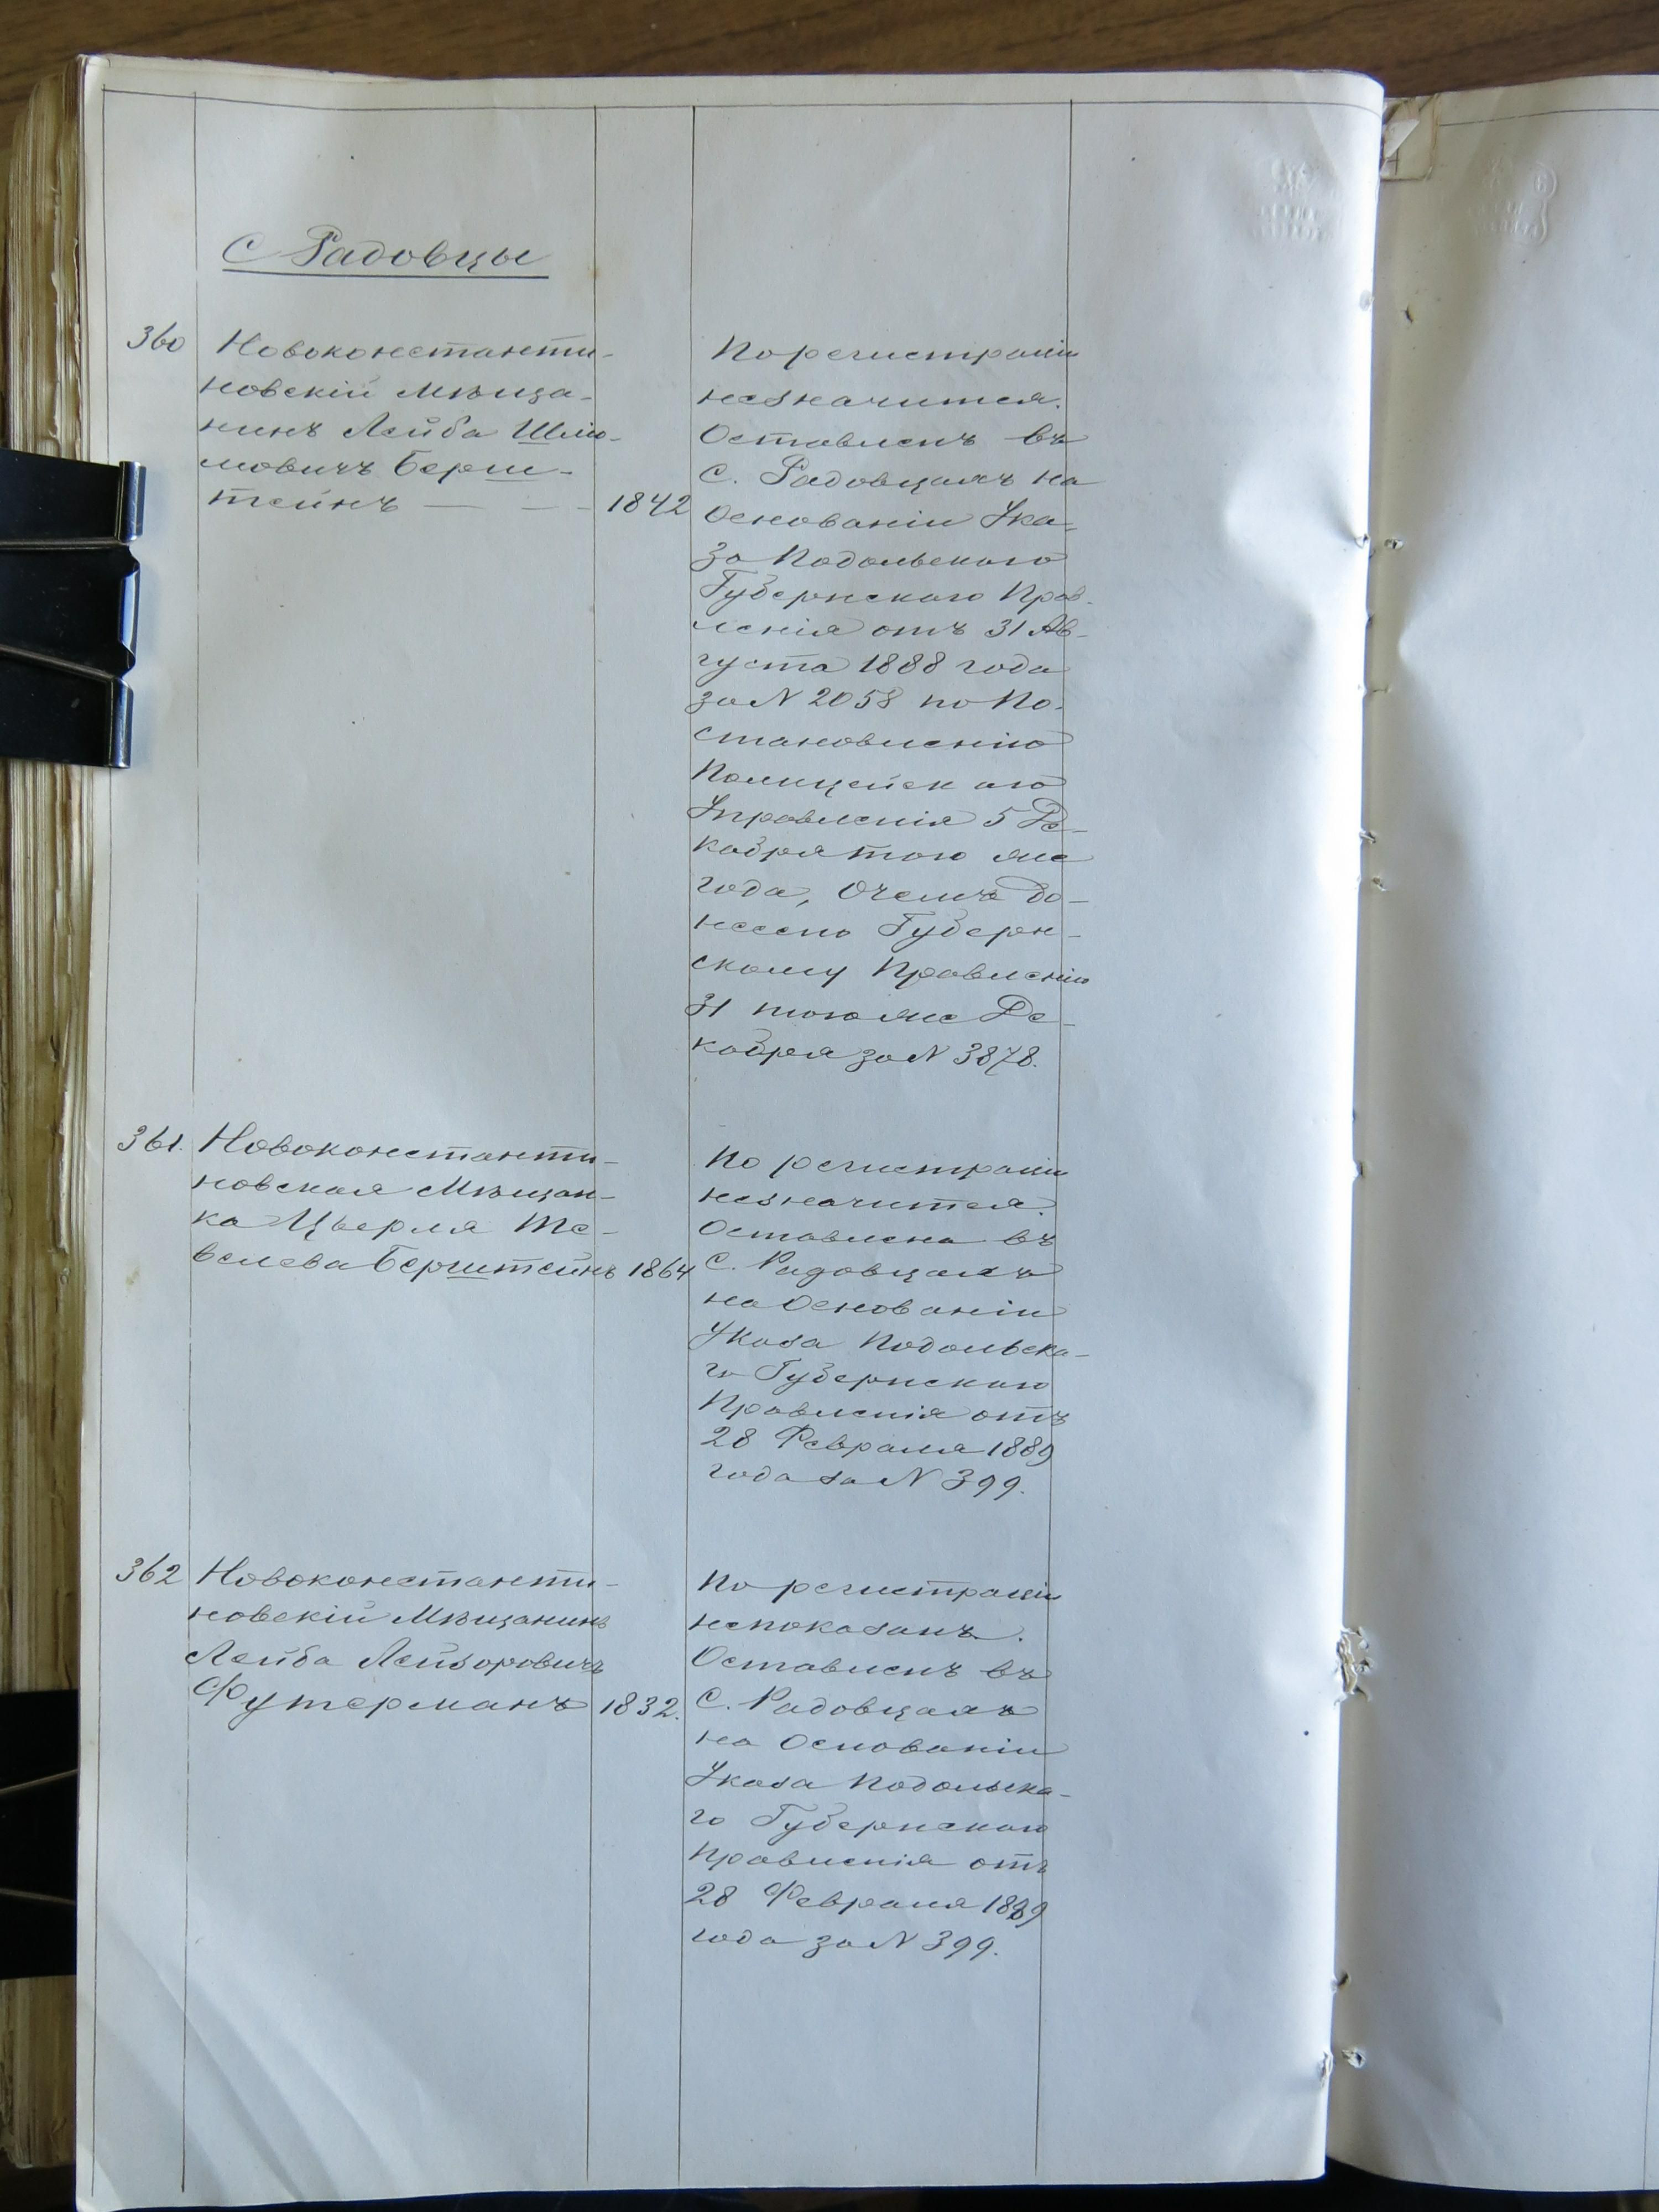 С Радовцы
360
Новоконстанти-
новскій Мѣща-
нинъ Лейба Шлио-
мовичъ Берш-
тейнъ — — - 1842
По регистраціи
незначится.
Оставленъ въ
С. Радовцахъ на
Основаніи Ука-
за Подольскаго
Губернскаго Прав-
ленія отъ 31 Ав-
густа 1888 года
за N 2058 по По-
становленію
Полицейскаго
Управленія 5 Де-
кабря того же
года, О чемъ до-
несено Губерн-
скому Правленію
31 того же Де-
кабря за N 3878.
361.
Новоконстанти-
новская Мѣщан-
ка Цверля Те-
велева Берштейнъ 1864
По регистраціи
незначится.
Оставлена въ
С. Радовцахъ
на Основаніи
Указа Подольска-
го Губернскаго
Правленія отъ
28 Февраля 1889
года за N 399.
362
Новоконстанти-
новскій Мѣщанинъ
Лейба Лейзоровичъ
Футерманъ 1832.
По регистраціи
непоказанъ.
Оставленъ въ
С. Радовцахъ
на Основаніи
Указа Подольска-
го Губернскаго
Правленія отъ
28 Февраля 1889
года за N 399.